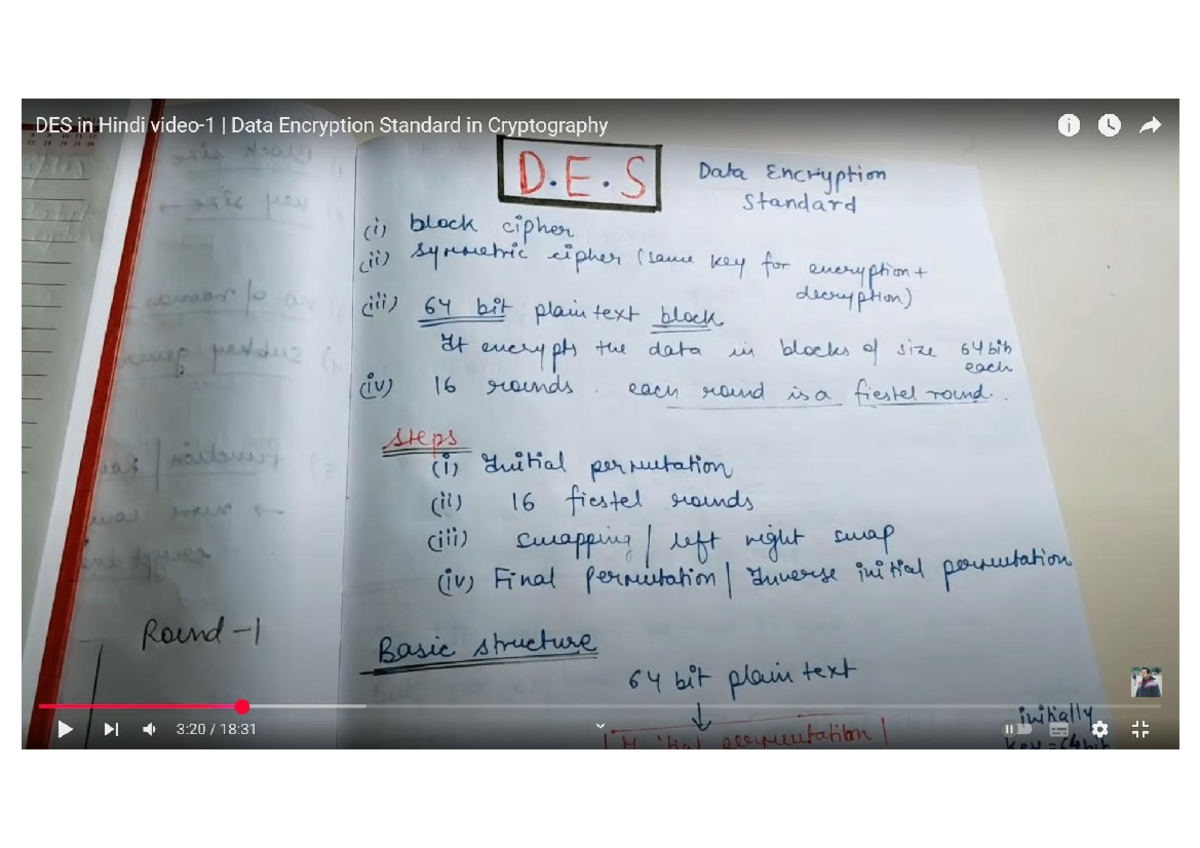 DES in Hindi video-1 | Data Encryption Standard in Cryptography
D.E.S
Data Encryption
Standard
(i) block cipher
(ii) symmetric cipher (same key for encryption +
decryption)
(iii) 64 bit plain text block
It encrypts the data in blocks of size 64 bit
each
(iv) 16 rounds . each round is a fiestel round .
Steps
(i) Initial permutation
(ii) 16 fiestel rounds
(iii) swapping / left right swap
(iv) Final permutation / Inverse initial permutation
Round-1
Basic structure
64 bit plain text
Initial permutation
initially
key = 64 bit
3:20 / 18:31